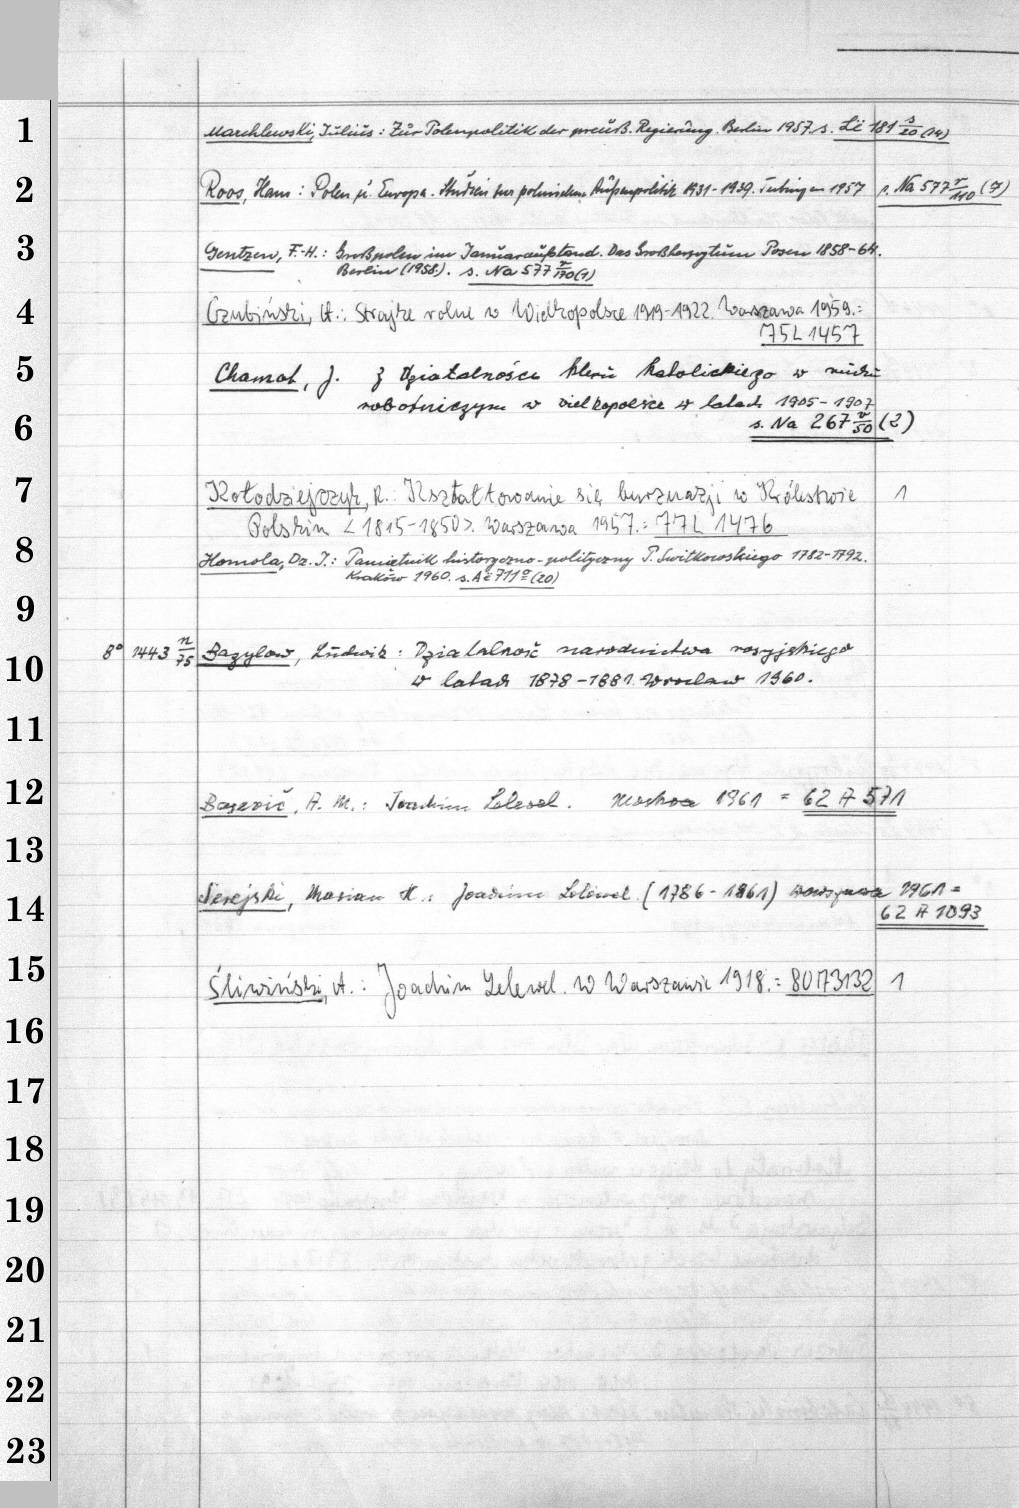 1 Marchlewski, Julius: Zur Polenpolitik der preuß. Regierung. Berlin 1957. s. Li 181 s/20 (14)
2 Roos, Hans: Polen u. Europa. Studien zur polnischen Außenpolitik 1931-1939. Tübingen 1957 s. Na 577 r/110 (7)
3 Gentzen, F.-H.: Großpolen im Januaraufstand. Das Großherzogtum Posen 1858-64.
Berlin (1958). s. Na 577 v/170 (1)
4 Czubiński, A.: Strajki rolne w Wielkopolsce 1919-1922. Warszawa 1959.=
75L 1457
5 Chamot, J. Z działalności kleru katolickiego w ruchu
robotniczym w Wielkopolsce w latach 1905-1907
6 s. Na 267 v/50 (2)
7 Kołodziejczyk, R.: Kształtowanie się burżuazji w Królestwie 1
Polskim <1815-1850>. Warszawa 1957.= 77L 1476
8 Homola, Dz. I.: Pamiętnik historyczno-polityczny P. Switkowskiego 1782-1792.
Kraków 1960. s. Ac 7110 (20)
9
10 8° 1443 n/75 Bazylow, Ludwik: Działalność narodnictwa rosyjskiego
w latach 1878-1881. Wrocław 1960.
11
12 Basevič, A. M.: Joachim Lelewel. Moskva 1961 = 62 A 571
13
14 Serejski, Marian H.: Joachim Lelewel (1786-1861) Warszawa 1961 =
62 A 1093
15 Śliwiński, A.: Joachim Lelewel. W Warszawie 1918.= 80173132 1
16
17
18
19
20
21
22
23